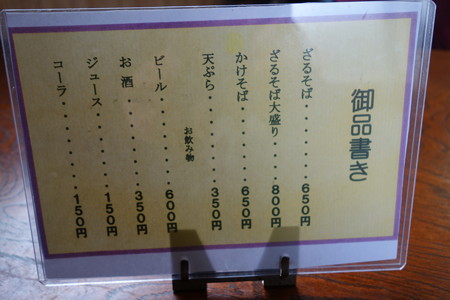 御品書き
ざるそば・・・・・・・650円
ざるそば大盛り・・・・800円
かけそば・・・・・・・650円
天ぷら・・・・・・・・350円
お飲み物
ビール・・・・・・・・600円
お酒・・・・・・・・・350円
ジュース・・・・・・・150円
コーラ・・・・・・・・150円